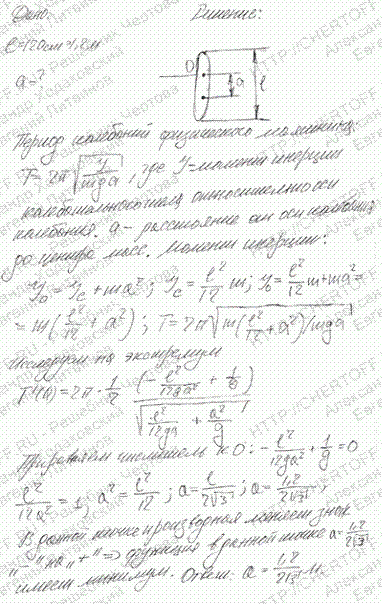 Дано: Решение:
l=120см=1,2м
a-?
O a l
Период колебаний физического маятника:
T = 2π√(J/mga), где J-момент инерции
колеблющегося тела относительно оси
колебания. a - расстояние от оси колебания
до центра масс. Момент инерции:
J₀ = J_C + ma²; J_C = l²/12 m; J₀ = l²/12 m + ma² =
= m(l²/12 + a²); T = 2π√(m(l²/12 + a²)/mga)
Исследуем на экстремум
T'(a) = 2π · 1/2 · (-l²/12ga² + 1/g) / √(l²/12ga + a²/g)
Приравняем числитель к 0: -l²/12ga² + 1/g = 0
l²/12a² = 1; a² = l²/12; a = l/2√3; a = 1,2/2√3
В данной точке производная меняет знак
„-" на „+" => функция в данной точке a = 1,2/2√3
имеет минимум. Ответ: a = 1,2/2√3 м